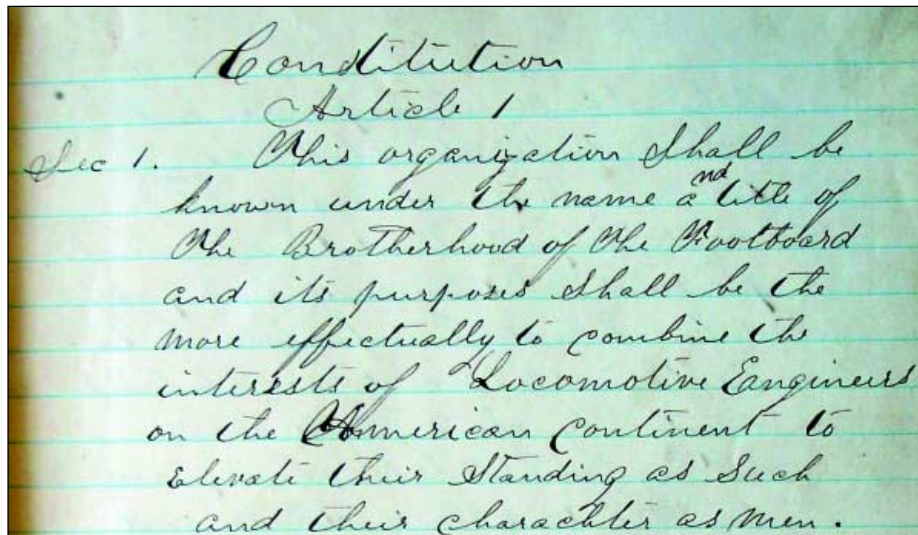 Constitution
Article 1
Sec 1. This organization Shall be
known under the name and title of
The Brotherhood of The Footboard
and its purposes Shall be the
more effectually to combine the
interests of Locomotive Engineers
on the American Continent to
Elevate their Standing as Such
and their charachter as men.